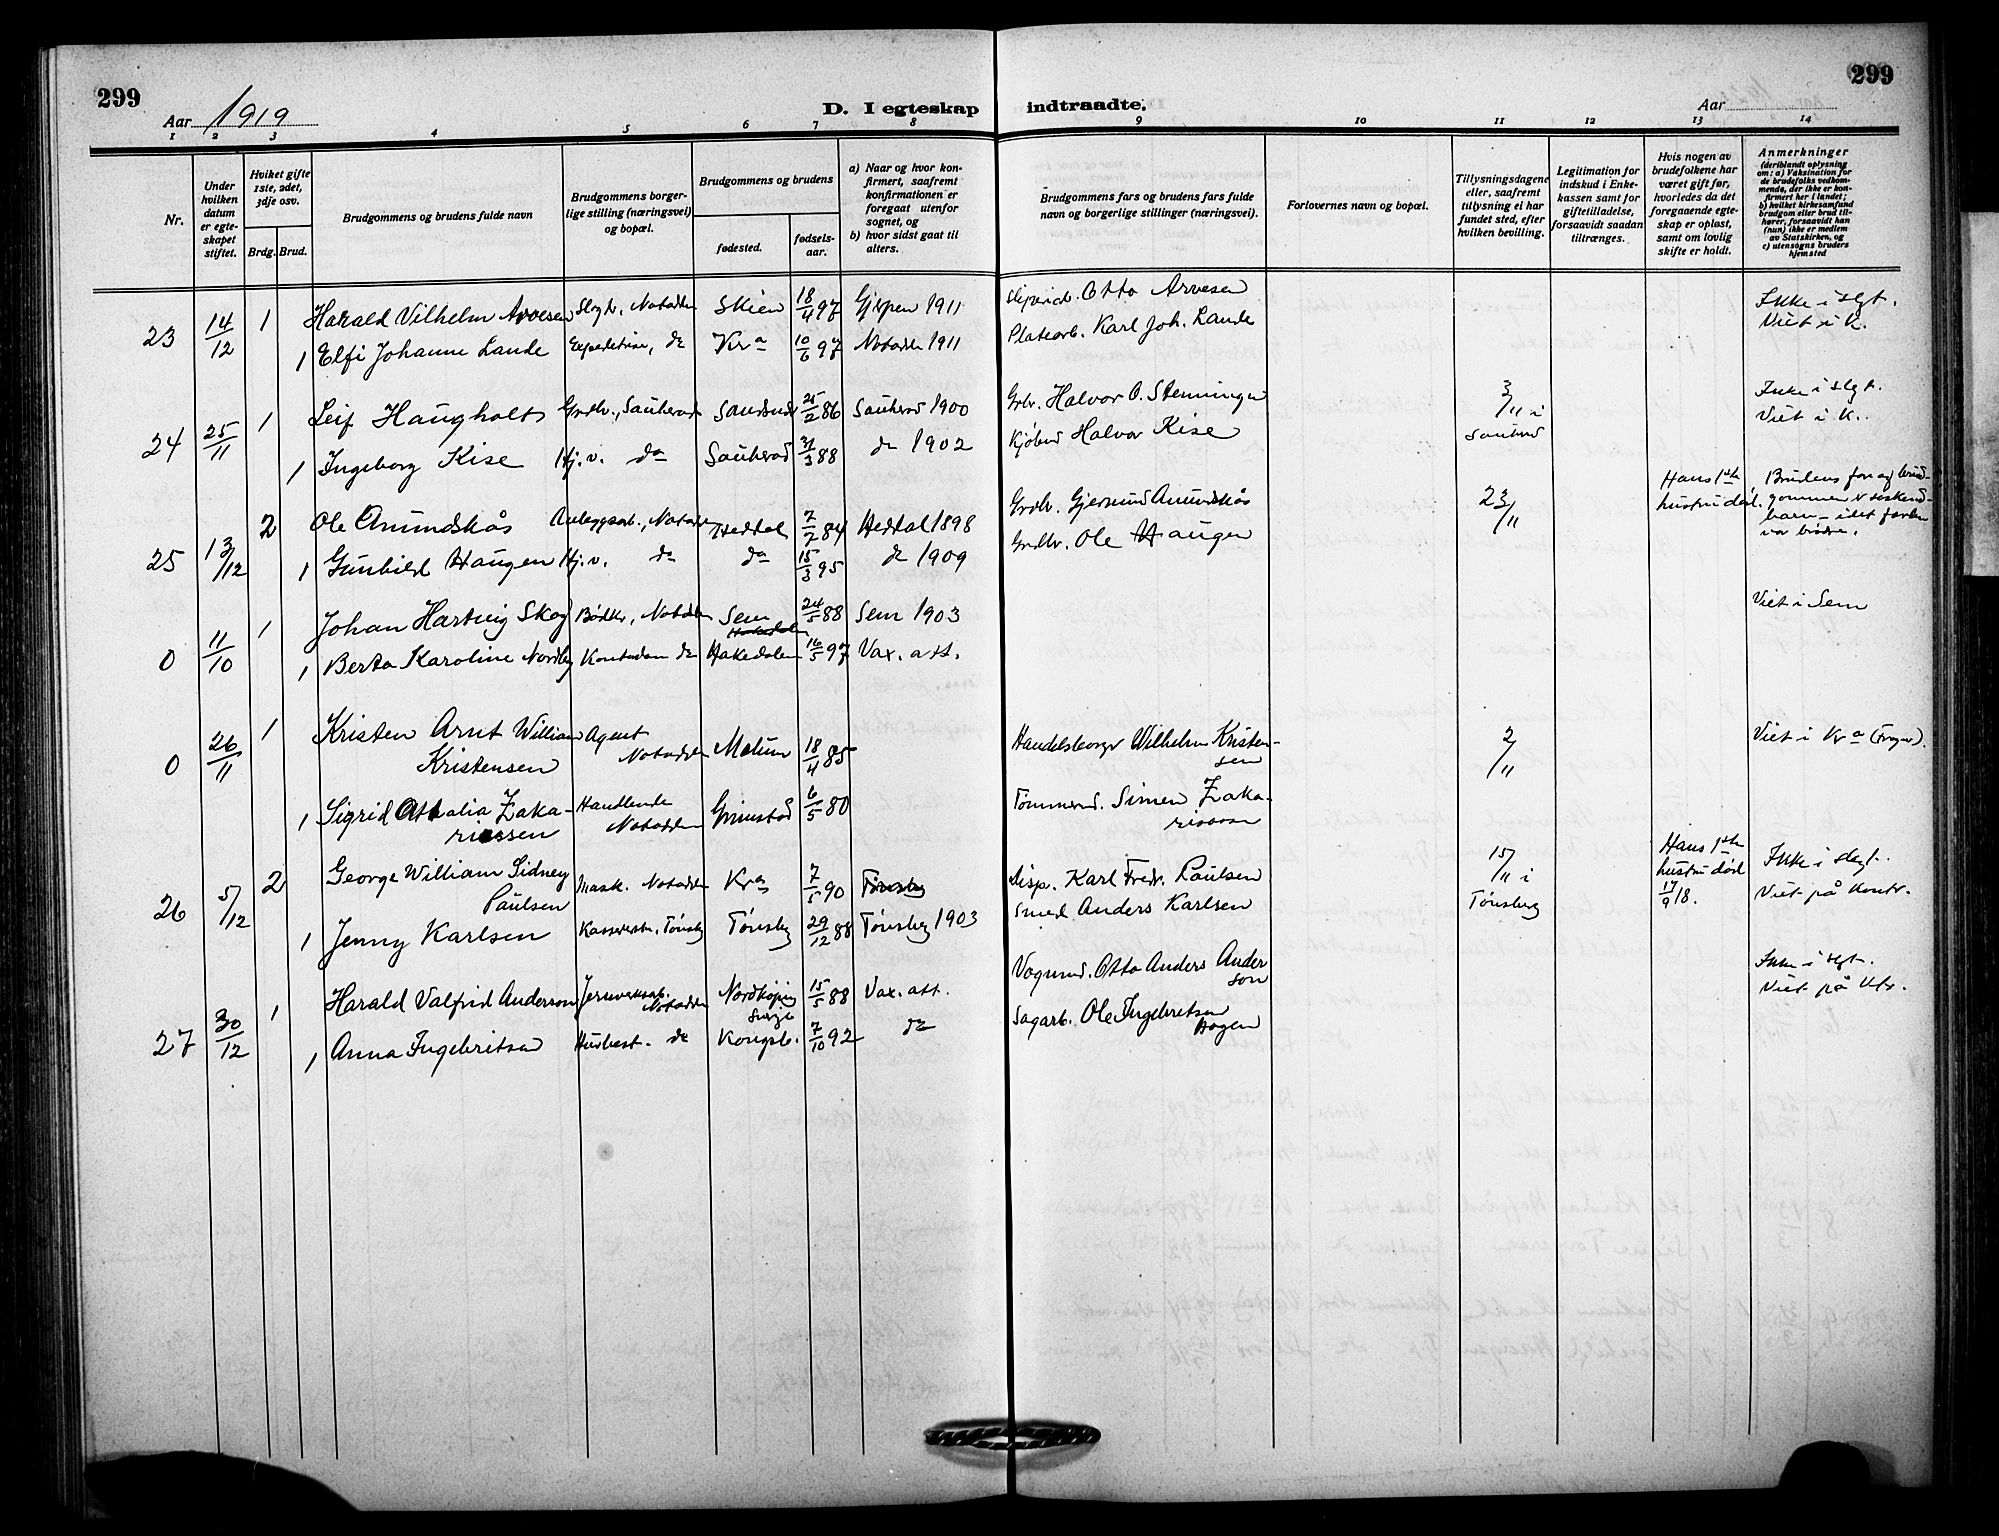 299
299
Aar 1919
D. I egteskap indtraadte.
Aar
1 2 3 4 5 6 7 8 9 10 11 12 13 14
Nr.
Under hvilken datum er egteskapet stiftet.
Hviket gifte 1ste, 2det, 3dje osv.
Brdg. Brud.
Brudgommens og brudens fulde navn
Brudgommens borgerlige stilling (næringsvei) og bopæl.
Brudgommens og brudens
fødested.
fødselsaar.
a) Naar og hvor konfirmert, saafremt konfirmationen er foregaat utenfor sognet, og
b) hvor sidst gaat til alters.
Brudgommens fars og brudens fars fulde navn og borgerlige stillinger (næringsvei).
Forlovernes navn og bopæl.
Tillysningsdagene eller, saafremt tillysning ei har fundet sted, efter hvilken bevilling.
Legitimation for indskud i Enkekassen samt for giftetilladelse, forsaavidt saadan tiltrænges.
Hvis nogen av brudefolkene har været gift før, hvorledes da det foregaaende egteskap er opløst, samt om lovlig skifte er holdt.
Anmerkninger
(deriblandt oplysning om: a) Vaksination for de brudefolks vedkommende, der ikke er konfirmert her i landet; b) hvilket kirkesamfund brudgom eller brud tilhører, forsaavidt han (hun) ikke er medlem av Statskirken, og c) utensogns bruders hjemsted
23 14/12 1 Harald Vilhelm Arvesen Notodden Skien 18/4 97 Gjerpen 1911 Otto Arvesen Ikke i slgt.
Viet i K.
1 Elfi Johanne Lande Expeditrise, do Kra 10/6 97 Notodden 1911 Platearb. Karl Joh. Lande
24 25/11 1 Leif Haugholt Grdbr., Sauherad Sandsvær 25/2 86 Sauherad 1900 Grbr. Halvor O. Stenninger 3/11 i Sauherad Ikke i slgt.
Viet i K.
1 Ingeborg Kise Hj.v. do Sauherad 31/3 88 do 1902 Halvor Kise
25 13/12 2 Ole Amundskås Anlegsarb., Notodden Hedtal 7/2 84 Hedtal 1898 Grdbr. Gjermund Amundskås 23/11 Hans 1ste hustru død. Brudens far og brudgommen er søskendbarn – idet
var brødre.
1 Gunhild Haugen Hj.v. do do 15/3 95 do 1909 Grdbr. Ole Haugen
0 11/10 1 Johan Hartvig Skog Bødkr, Notodden Sem 24/5 88 Sem 1903 Viet i Sem
1 Berta Karoline Nordby Kontordam do Hakedalen 16/5 97 Vax. att.
0 26/11 1 Kristen Arnt William Kristensen Agent Notodden Melum 18/4 85 Handelsborger Wilhelm Kristensen 2/11 Viet i Kra (Frogner).
1 Sigrid Attalia Zakariassen Handlende Notodden Grimstad 6/5 80 Tømmermd. Simen Zakariassen
26 5/12 2 George William Sidney Paulsen Mask. Notodden Kra 7/5 90 Tønsberg Disp. Karl Fredr. Paulsen 15/11 i Tønsberg Hans 1ste hustru død 17/9 18. Ikke i slegt.
Viet på Kontr.
1 Jenny Karlsen Kassererske, Tønsbg Tønsbg 29/12 88 Tønsbeg 1903 Smed Anders Karlsen
27 30/12 1 Harald Valfrid Anderson Jernverksarb. Notodden Nordkøping Sverge 15/5 88 Vax. att. Vognmd. Otto Anders Anderson Ikke i slgt.
Viet på Ktr.
1 Anna Ingebritsen Husbest. do Kongsb. 7/10 92 do Sagarb. Ole Ingebritsen Hagen